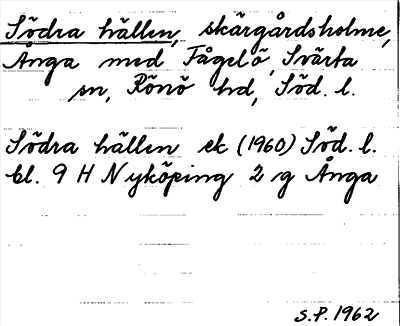 Södra hällen, skärgårdsholme,
Ånga med Fågelö, Svärta
sn, Rönö hd, Söd. l.
Södra hällen ek (1960) Söd. l.
bl. 9 H Nyköping 2 g Ånga
S.P. 1962